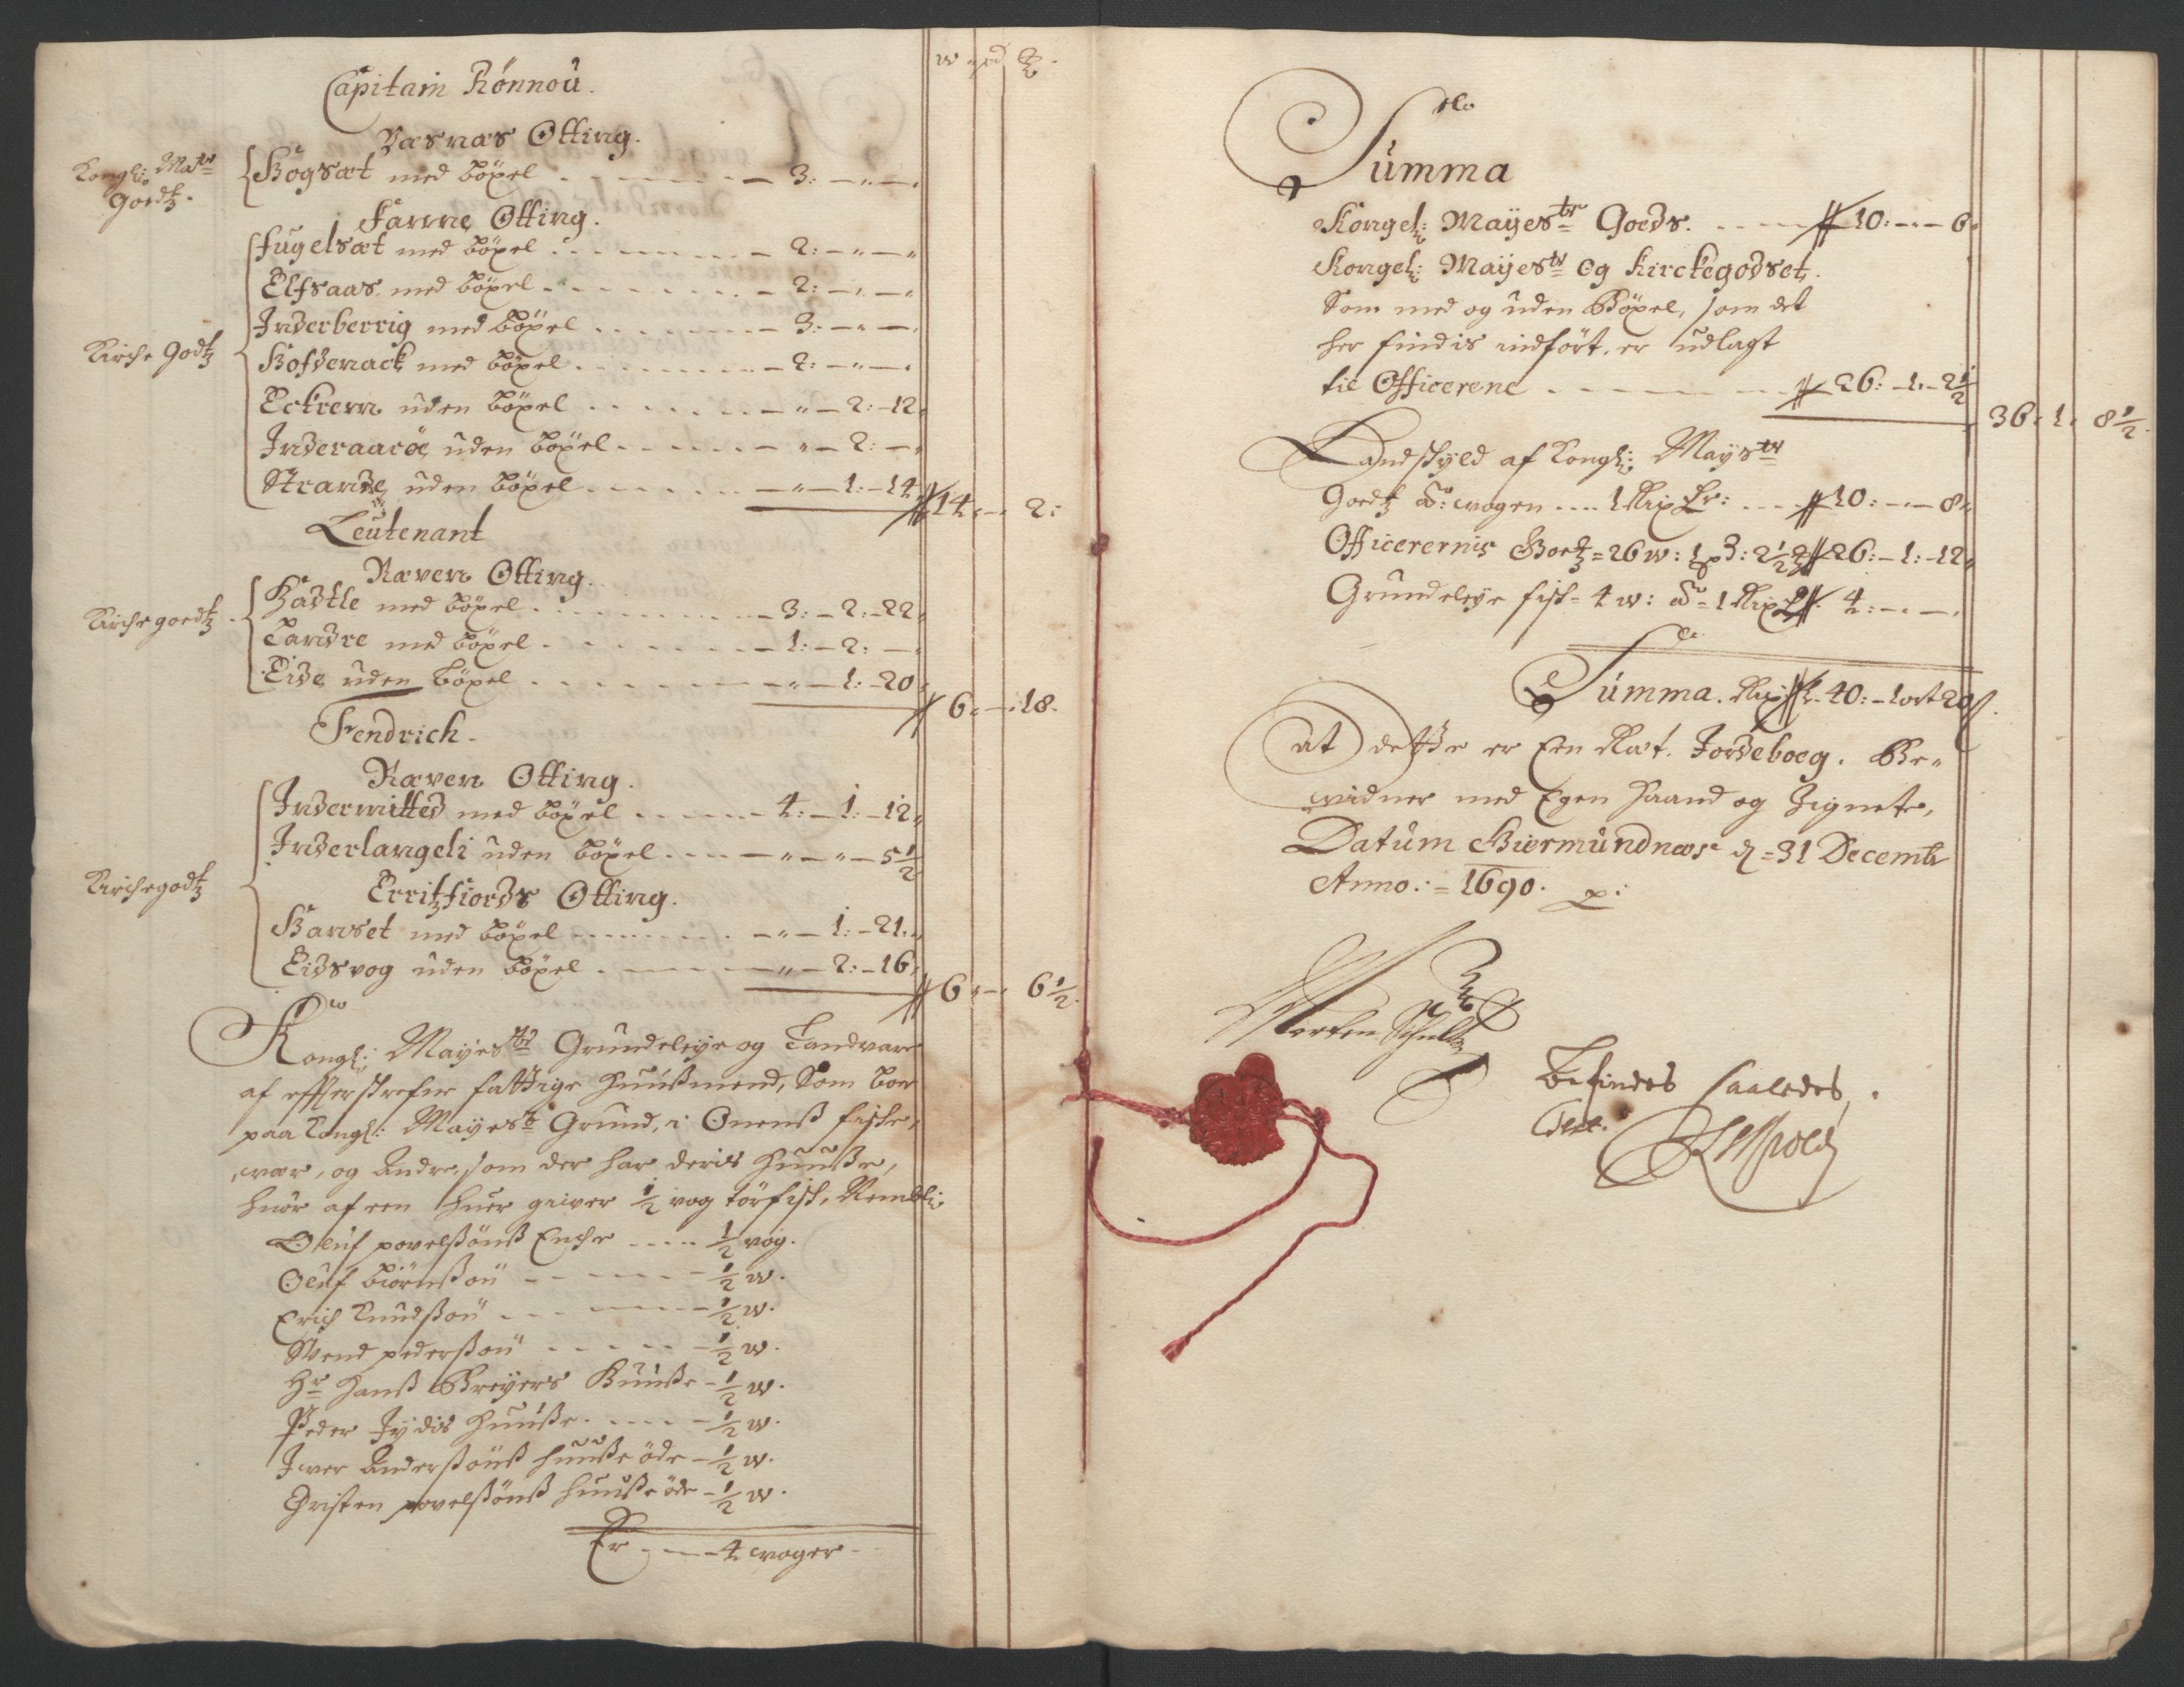 w pd ℔
Capitain Rönnou.
Væsnæs Otting.
Kongl: Maÿtz Goedtz.
Bogsæt med böxel - 3: - " - "
Farne Otting.
Fugelsæt med böxel - 2: - " - "
Elfsaas med böxel - 2: - " - "
Inderberrig med böxel - 3: - " - "
Kirche Godtz
Bosdenack med böxel - 2: - " - "
Eckrem uden böxel - " - 2: - 12
Inderaaröe uden böxel - " - 2: - "
Strande uden böxel - " - 1: - 14
14 " - " 2:
Leutenant
Ræven Otting.
Kirche goedtz
Hastle med böxel - 3: - 2: - 22
Tandre med böxel - 1: - 2: - "
Eide uden böxel - " - 1: - 20
6 " - " 18.
Fendrich.
Ræven Otting.
Indermitted med böxel - 4: - 1: - 12
Inderlangeli uden böxel - " - " - 5 1/2
Kirchegodtz
Erritzfiords Otting.
Barset med böxel - " - 1: - 21
Eidsvog uden böxel - " - 2: - 16
6 " - " 6 1/2.
Kongl: Maÿestz Grundeleÿe og Landvare
af effterskrefne fattige Huußmend, Som boer
paa Kongl: Maÿestz Grund, i Onenß fiske,
wær, og Andre, som der har deris Huuße,
huor af een huer giver 1/2 vog törfisk, Nembli:
Oluf povelßönß Enche - 1/2 vog.
Oluf Biörnßön - 1/2 w.
Erich Knudßön - 1/2 w.
Svend pederßön - 1/2 w.
Hr Hanß Breÿers Huuße - 1/2 w.
Peder Jÿdis Huuße - 1/2 w.
Iver Anderßönß huuße öde - 1/2 w.
Christen povelßönß huuße öde - 1/2 w.
Er - 4 woger
Summa
Kongel: Maÿestz Goeds. - 10: - " - 6
Kongel: Maÿestz og Kirckegodset.
Som med og uden Böxel, som det
her findis indfört, er udlagt
til Officerene - 26: - 1. - 2 1/2
36: 1: 8 1/2.
Landskÿld af Kongl: Maÿstz
Goedtz á: wogen .... 1 Rixdr: - 10: - " - 8
Officerernis Goetz = 26 w: 1 p 3: 2 1/2 ℔ 26: - 1: - 12
Grundeleÿe fisk = 4 w: á = 1 Rixdr 4: - " - "
Summa. Rixdr. 40: - 1 ort 20 ß.
At dette er Een Ræt. Jordeboeg. Be-
vidner med Egen Haand og Zignete,
Datum Biermundnæs d = 31 Decembr
Anno: = 1690. p:
Morten Schultz
Befindes saaledes,